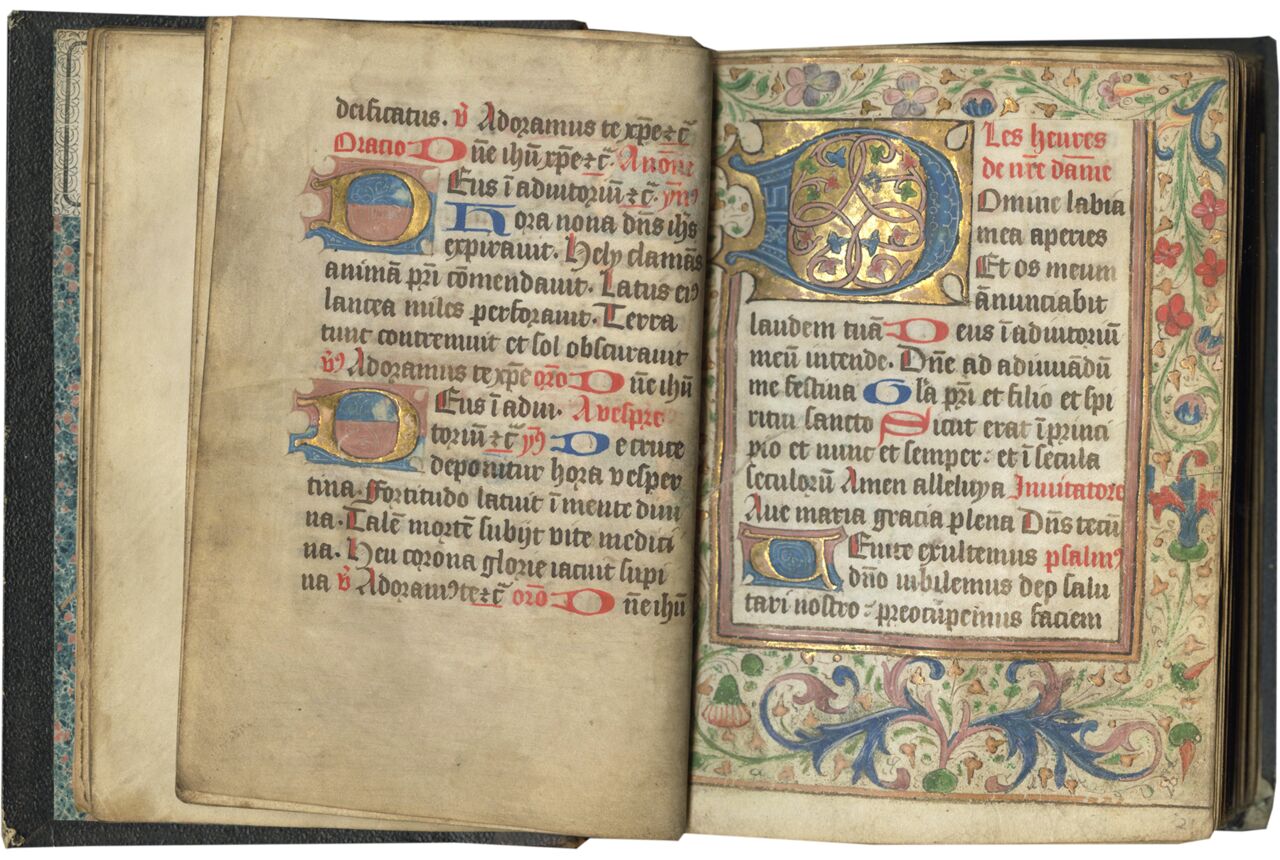 cificatus. v̄ Adoramus te xp̄e ⁊c̄
Oratio Dn̄e ihū xp̄e ⁊c̄. A none
Deus ī adiutoriū ⁊c̄. ymꝰ
Hora nona dn̄s ihs
expirauit. Hely clamās
animā pr̄i cōmendauit. Latus eiꝰ
lancea miles perforauit. Terra
tunc contremuit et sol obscurauit
v̄ꝰ Adoramus te xp̄e or̄o Dn̄e ihū
Deus ī adiu. A vespre
toriū ⁊c̄ ym̄ꝰ De cruce
deponitur hora vesper
tina. Fortitudo latuit ī mente diui
na. Talē mortē subijt vite medici
na. Heu corona glorie iacuit supi
na v̄ Adoramꝰ te ⁊c̄ or̄o Dn̄e ihū
Les heures
de nr̄e dame
Domine labia
mea aperies
Et os meum
ānunciabit
laudem tuā Deus ī adiutoriū
meū intende. Dn̄e ad adiuuādū
me festina Gl̄a pr̄i et filio et spi
ritui sancto Sicut erat ī princi
pio et nunc et semper: et ī secula
seculorū Amen alleluya Inuitatore
Aue maria gracia plena Dn̄s tecū
Uenite exultemus psalmꝰ
dn̄o iubilemus deo salu
tari nostro: preocūpemus faciem
21